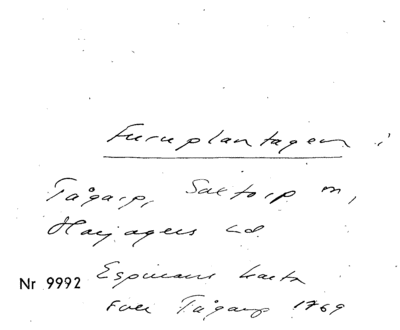 Furuplantagen i
Tågarp, Saxtorp m,
Harjagers hd
Nr 9992 Espmans karta
över Tågarp 1769